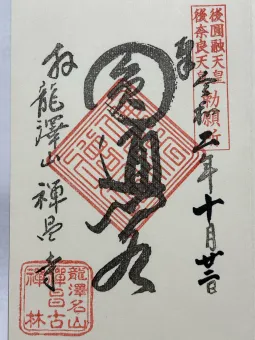 後圓融天皇
後奈良天皇
勅願所
奉
令和二年十月廿二日
圓通閣
於龍澤山禅昌寺
龍澤名山
禅昌古
禅林